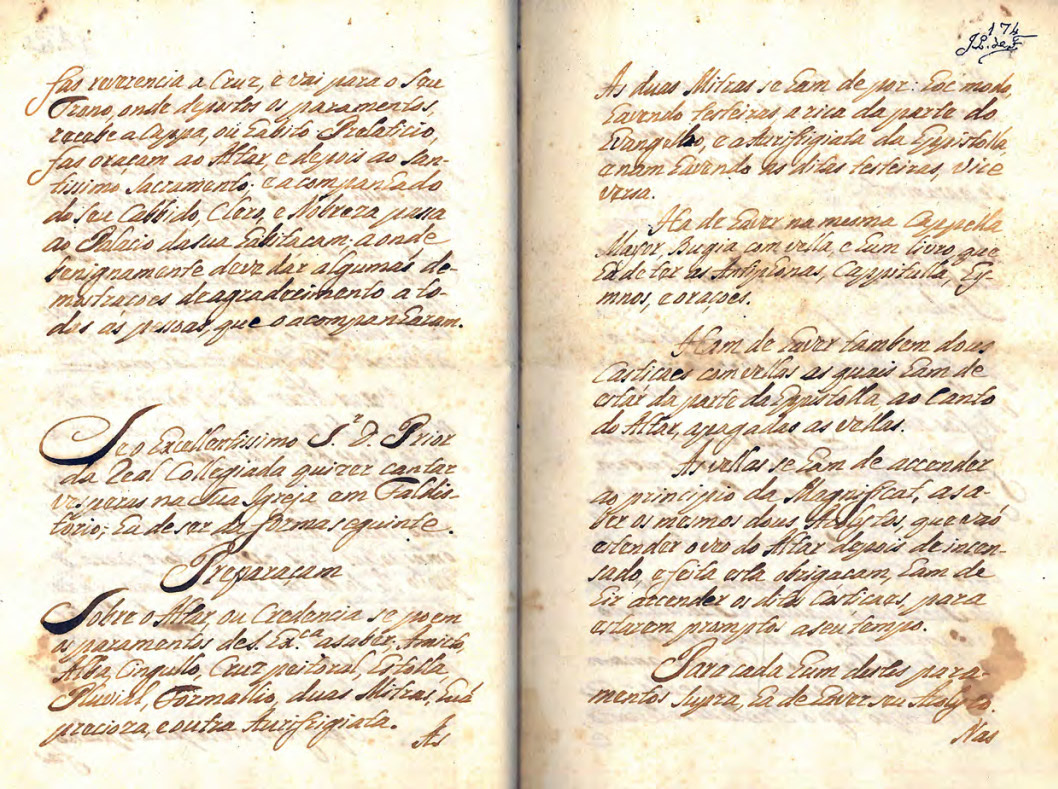 fas reverencia a Cruz, e vai para o seu
Trono, onde depostos os paramentos
recebe a Cappa, ou habito Prelaticio,
fas oraçam ao Altar, e depois ao San-
tissimo Sacramento; e acompanhado
do seu Cabbido, Clero, e Nobreza passa
ao Palacio da sua habitacam, aonde
benignamente deve dar algumas de-
mostraçoes de agradecimento a to-
das as pessoas, que o acompanharam.
Se o Excellentissimo S.r D. Prior
da Real Collegiada quizer cantar
vesperas na sua Igreja em Faldis-
torio; ha de ser da forma seguinte.
Preparaçam
Sobre o Altar, ou Credencia se poem
os paramentos de S. Ex.cia a saber, Amicto,
Alba, Cingullo, Cruz peitoral, Estolla,
Pluvial, Formallio, duas Mitras, huã
precioza, e outra Aurifrigiata.
As
174
As duas Mitras se ham de por: hoc modo,
havendo testeiras, a rica da parte do
Evangelho, e a Aurifrigiata da Epistolla
e nam havendo as ditas testeiras, vice
versa.
Ha de haver na mesma Cappella
Mayor, Bugia com vella, e hum livro, que
ha de ter as Antiphonas, Cappitulla, Hy-
mnos, e oraçoes.
Ham de haver tambem dous
Casticaes com vellas as quais ham de
estar da parte da Epistolla ao Canto
do Altar, apagadas as vellas.
As vellas se ham de accender
ao principio da Magnificat, a sa-
ber os mesmos dous Acolytos, que vaó
estender o veo do Altar depois de incen-
sado, e feita esta obrigacam, ham de
hir accender os ditos Casticaes, para
estarem promptos a seu tempo.
Para cada hum destes para-
mentos supra, ha de haver seu Acolyto.
Nas